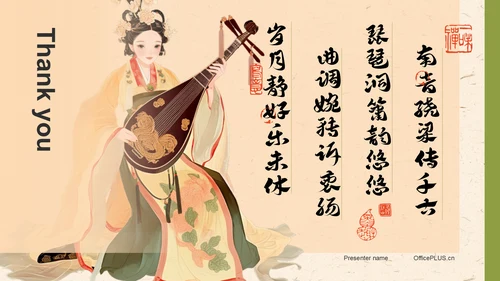 Thank you
南音绕梁传千六
琵琶洞箫韵悠悠
曲调婉转诉衷肠
岁月静好乐未休
Presenter name
OfficePLUS.cn